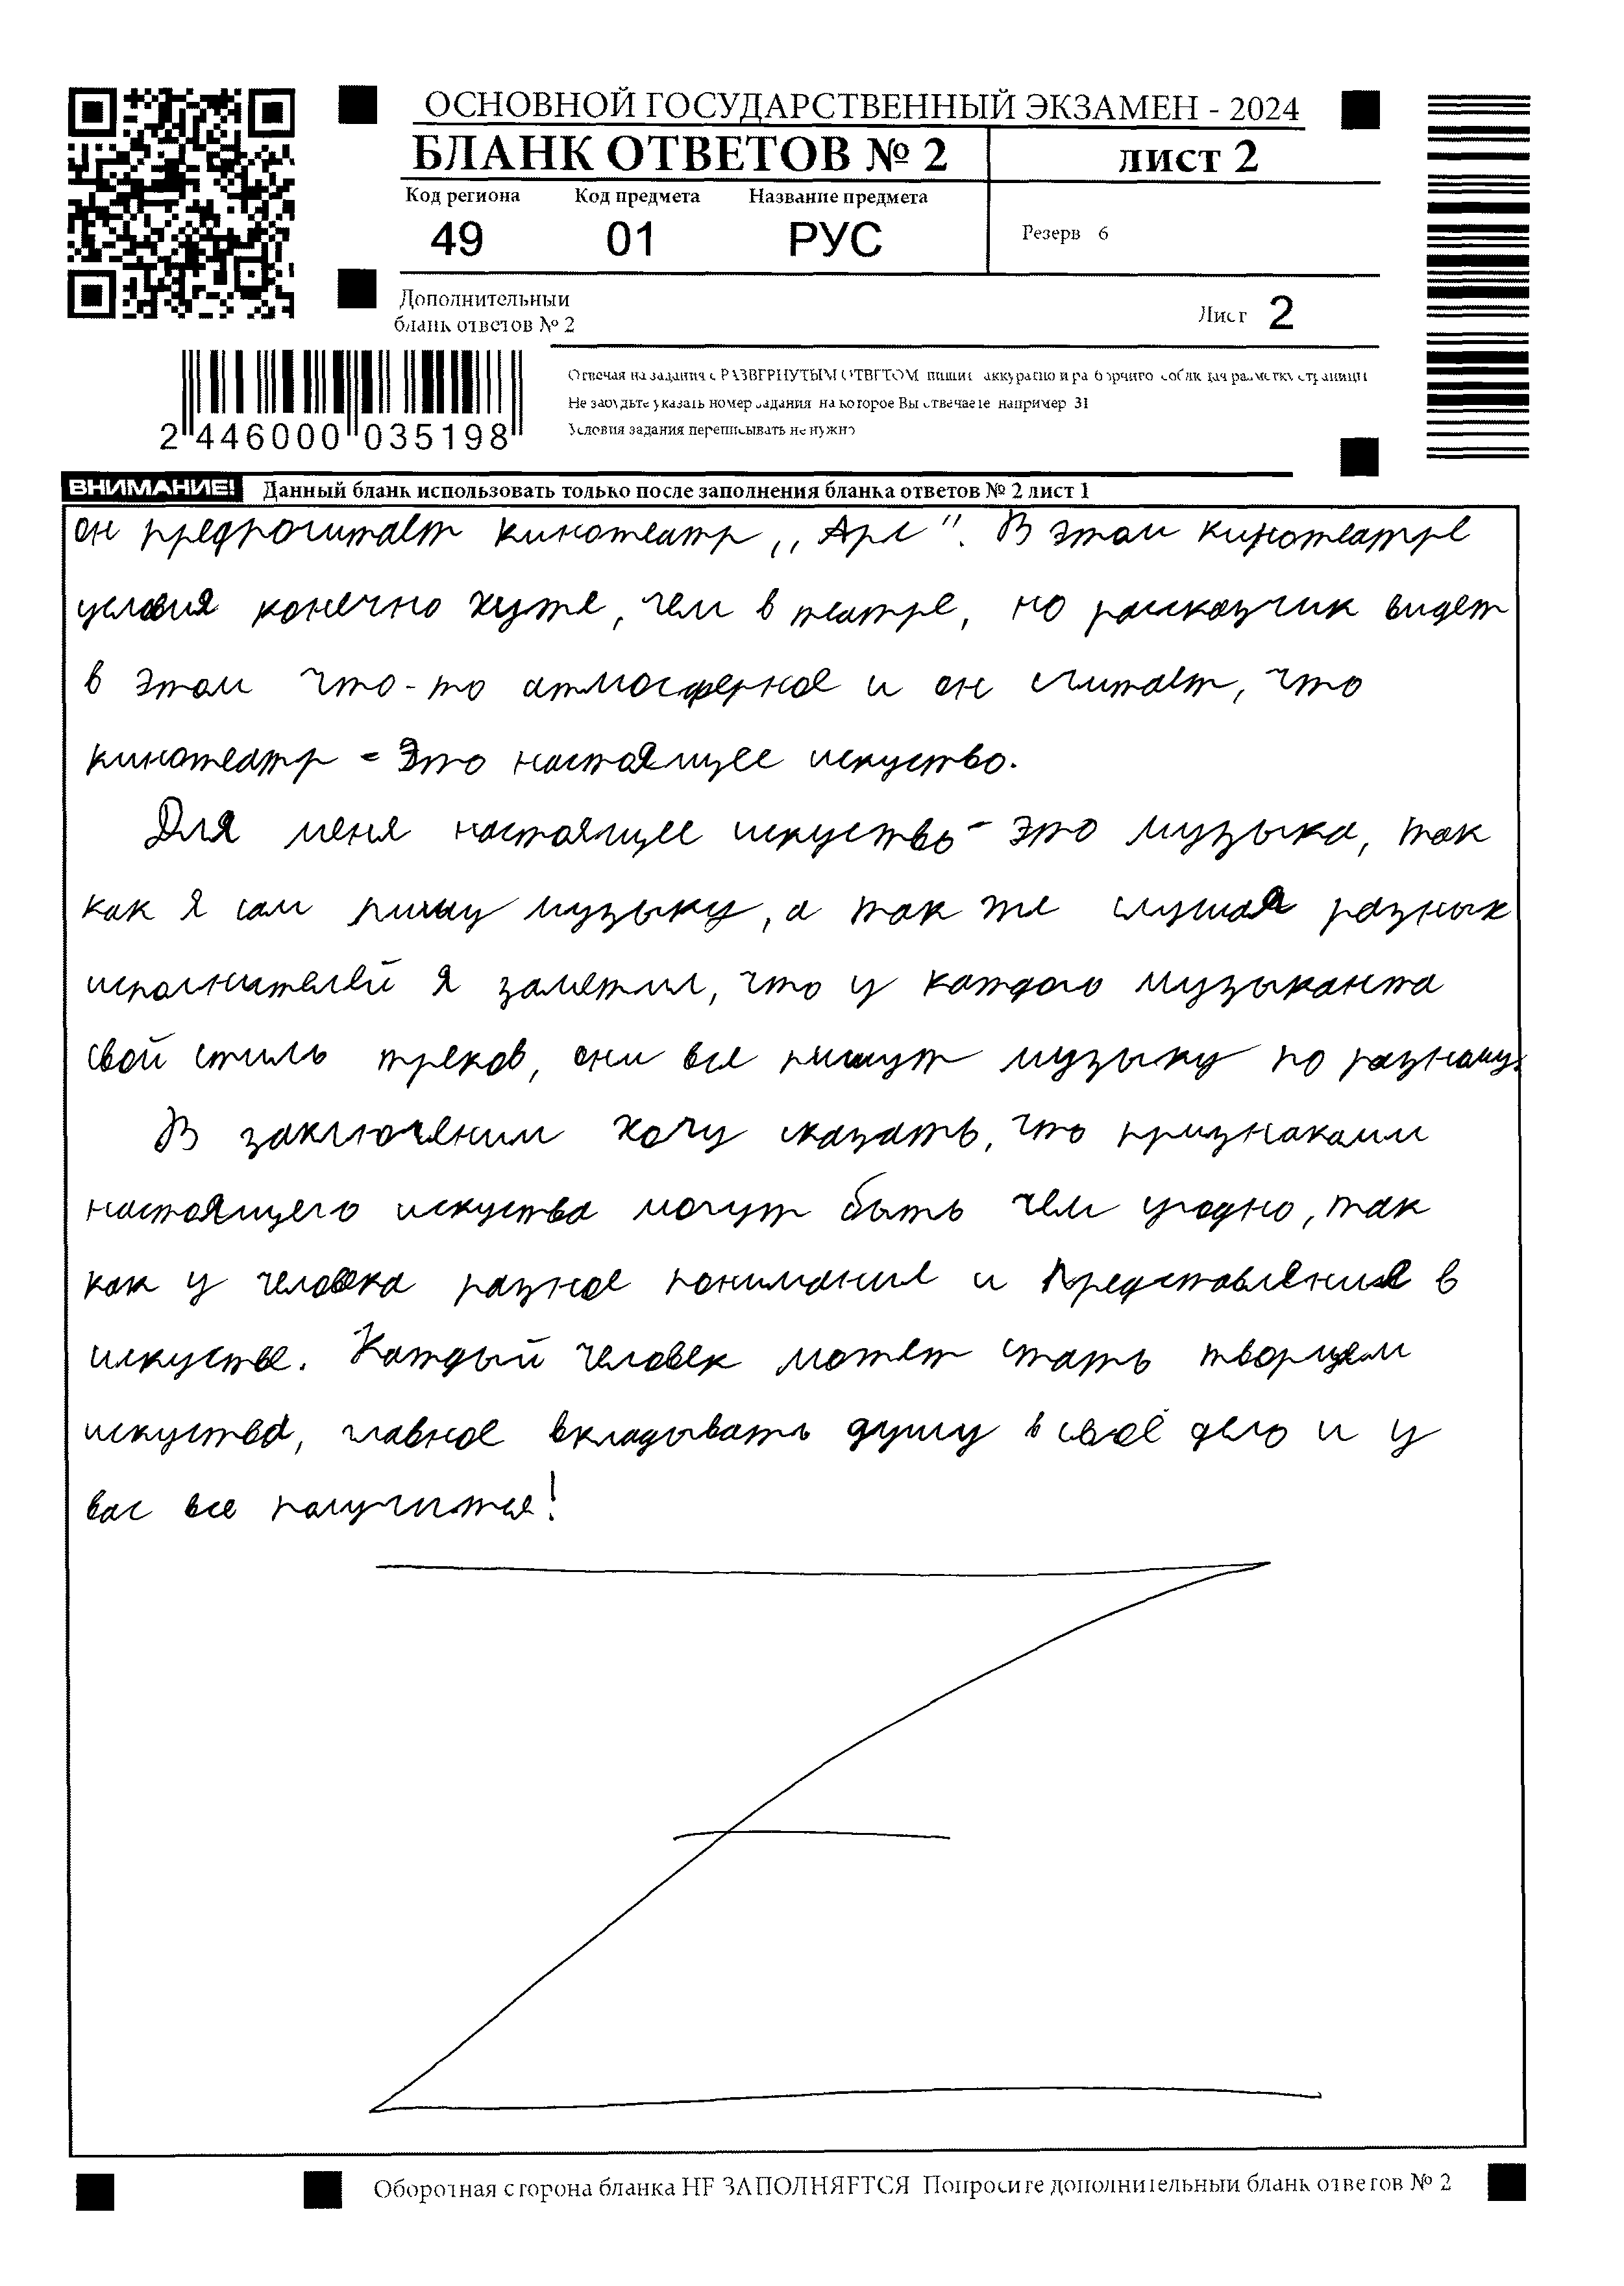 ОСНОВНОЙ ГОСУДАРСТВЕННЫЙ ЭКЗАМЕН - 2024
БЛАНК ОТВЕТОВ № 2 лист 2
Код региона Код предмета Название предмета
49 01 РУС
Резерв 6
Дополнительный
бланк ответов № 2
Лист 2
Отвечая на задания с РАЗВЕРНУТЫМ ОТВЕТОМ пишите аккуратно и разборчиво соблюдая разметку страницы
Не забудьте указать номер задания на которое Вы отвечаете например 31
Условия задания переписывать не нужно
2 446000 035198
ВНИМАНИЕ! Данный бланк использовать только после заполнения бланка ответов № 2 лист 1
он предпочитает кинотеатр ,, Арс ". В этом кинотеатре
условия конечно хуже, чем в театре, но рассказчик видет
в этом что-то атмосферное и он считает, что
кинотеатр - Это настоящее искуство.
Для меня настоящее искуство - это музыка, так
как я сам пишу музыку, а так же слушая разных
исполнителей я заметил, что у каждого музыканта
свой стиль треков, они все пишут музыку по разному.
В заключении хочу сказать, что признаками
настоящего искуства могут быть чем угодно, так
как у человека разное понимание и Представления в
искустве. Каждый человек может стать творцем
искуства, главное вкладывать душу в своё дело и у
вас все получится!
Оборотная сторона бланка НЕ ЗАПОЛНЯЕТСЯ Попросите дополнительный бланк ответов № 2